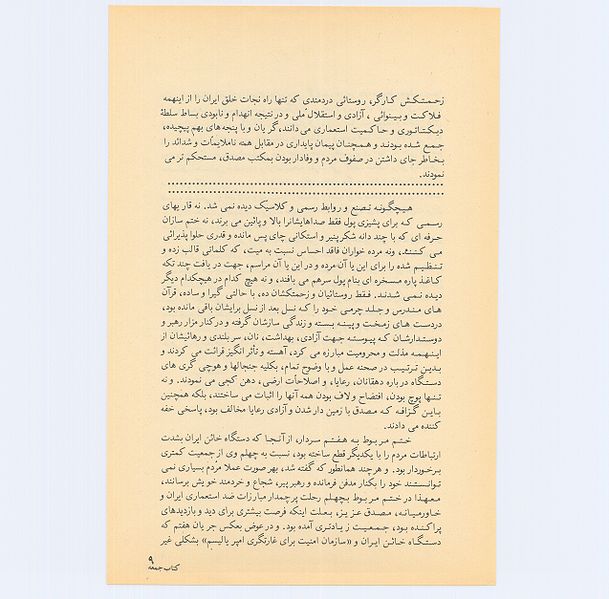 زحـمتـکـش کـارگر، روستائی دردمندی که تنها راه نجات خلق ایران را از اینهمه
فـلاکـت و بـیـنوائی ، آزادی و استقلال مّلی و در نتیجه انهدام و نابودی بساط سلطهٔ
دیـکـتـاتـوری و حـاکـمیت استعماری می دانند، گریان و با پنجه‌های بهم پیچیده،
جـمـع شده بـودنـد و هـمـچنـان پیمان پایداری در مقابل همه ناملایمات و شدائد را
بـخـاطر جای داشتن در صفوف مردم و وفادار بودن بمکتب مصدق، مستحکم تر می
نمودند.
هـیچگـونـه تـصنع و روابط رسمی و کلاسیک دیده نمی شد. نه قاریهای
رسـمـی کـه برای پشیزی پول فقط صداهایشانرا بالا و پائین می برند، نه ختم سازان
حـرفـه ای که با چند دانه شکر پنیر و استکانی چای پس مانده و قدری حلوا پذیرائی
مـی کـنـنـد، ونه مرده خواران فاقد احساس نسبت به میت، که کلماتی قالب زده و
تـنـظـیـم شده را برای این یا آن مرده و در این یا آن مراسم، جهت دریافت چند تکه
کـاغـذ پاره مـسـخره ای بنام پول سرهم می بافند، و نه هیچ کدام در هیچکدام دیگر
دیـده نـمـی شـدنـد. فـقط روستائیان و زحمتکشان ده، با حالتی گیرا و ساده، قرآن
هـای مـنـدرس و جـلـد چرمـی خـود را کـه نسل بعد از نسل برایشان باقی مانده بود،
دردسـت هـای زمـخـت و پیـنـه بـسـته و زندگی سازشان گرفته و در کنار مزار رهبر و
دوسـتـدارشـان کـه پیـوسـتـه جـهـت آزادی، بهداشت، نان، سربلندی و رهائیشان از
ایـنـهـمـه مذلت و محرومیت مبارزه می کرد، آهسته و تأثر انگیز قرائت می کردند و
بـدیـن تـرتـیـب در صحنه عمل و با وضوح تمام، بکلیه جنجالها و هوچی گری های
دسـتـگـاه دربـاره دهقانان، رعایا، و اصلاحات ارضی، دهن کجی می نمودند. و نه
تـنـهـا پوچ بودن، افتضاح و لاف بودن همه آنها را اثبات می ساختند، بلکه همچنین
بـایـن گـزافـه کـه مـصدق با زمین دار شدن و آزادی رعایا مخالف بود، پاسخی خفه
کننده می دادند.
خـتـم مـربـوط بـه هـفـتـم سردار، از آنـجـا کـه دستگاه خائن ایران بشدت
ارتباطات مردم را با یکدیگر قطع ساخته بود، نسبت به چهلم وی از جمعیت کمتری
بـرخـوردار بود. و هرچند همانطور که گفته شد، بهر صورت عملا مردم بسیاری نمی
تـوانـسـتـنـد خود را بکنار مدفن فرمانده و رهبر پیر، شجاع و خردمند خویش برسانند،
مـعـهـذا در خـتـم مـربـوط بـچـهـلـم رحلت پرچمدار مبارزات ضد استعماری ایران و
خـاورمیـانـه، مـصـدق عـزیـز، بـعـلـت اینکه فرصت بیشتری برای دید و بازدیدهای
پـراکـنـده بـود، جـمـعـیـت زیـادتـری آمده بود. و در عوض بعکس جریان هفتم که
دسـتـگـاه خـائـن ایـران و «سازمان امنیت برای غارتگری امپریالیسم» بشکلی غیر
کتاب جمعه ۹